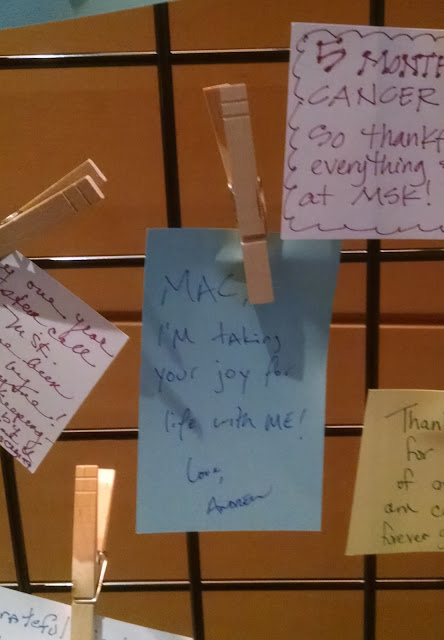 5 MONTH
CANCER
So thankf
everything
at MSK!
MAC,
I'M taking
your joy for
life with ME!
Love,
Andrew
one year
call
MSK
been
before!
Than
for
of
and c
forever g
rateful